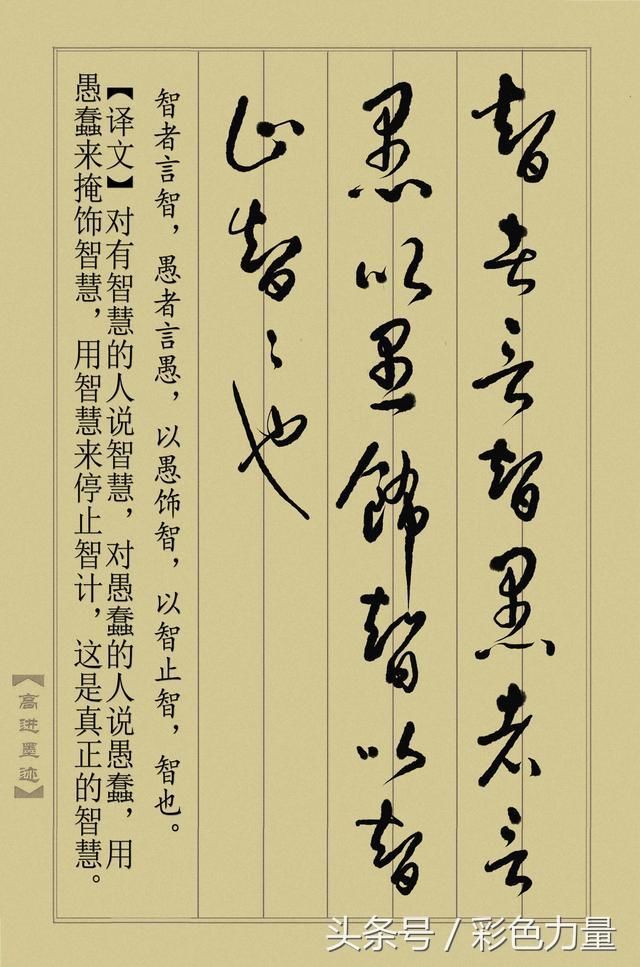 智者言智愚者言
愚以愚飾智以智
止智〻也
智者言智，愚者言愚，以愚饰智，以智止智，智也。
【译文】对有智慧的人说智慧，对愚蠢的人说愚蠢，用
愚蠢来掩饰智慧，用智慧来停止智计，这是真正的智慧。
【高进墨迹】
头条号 / 彩色力量